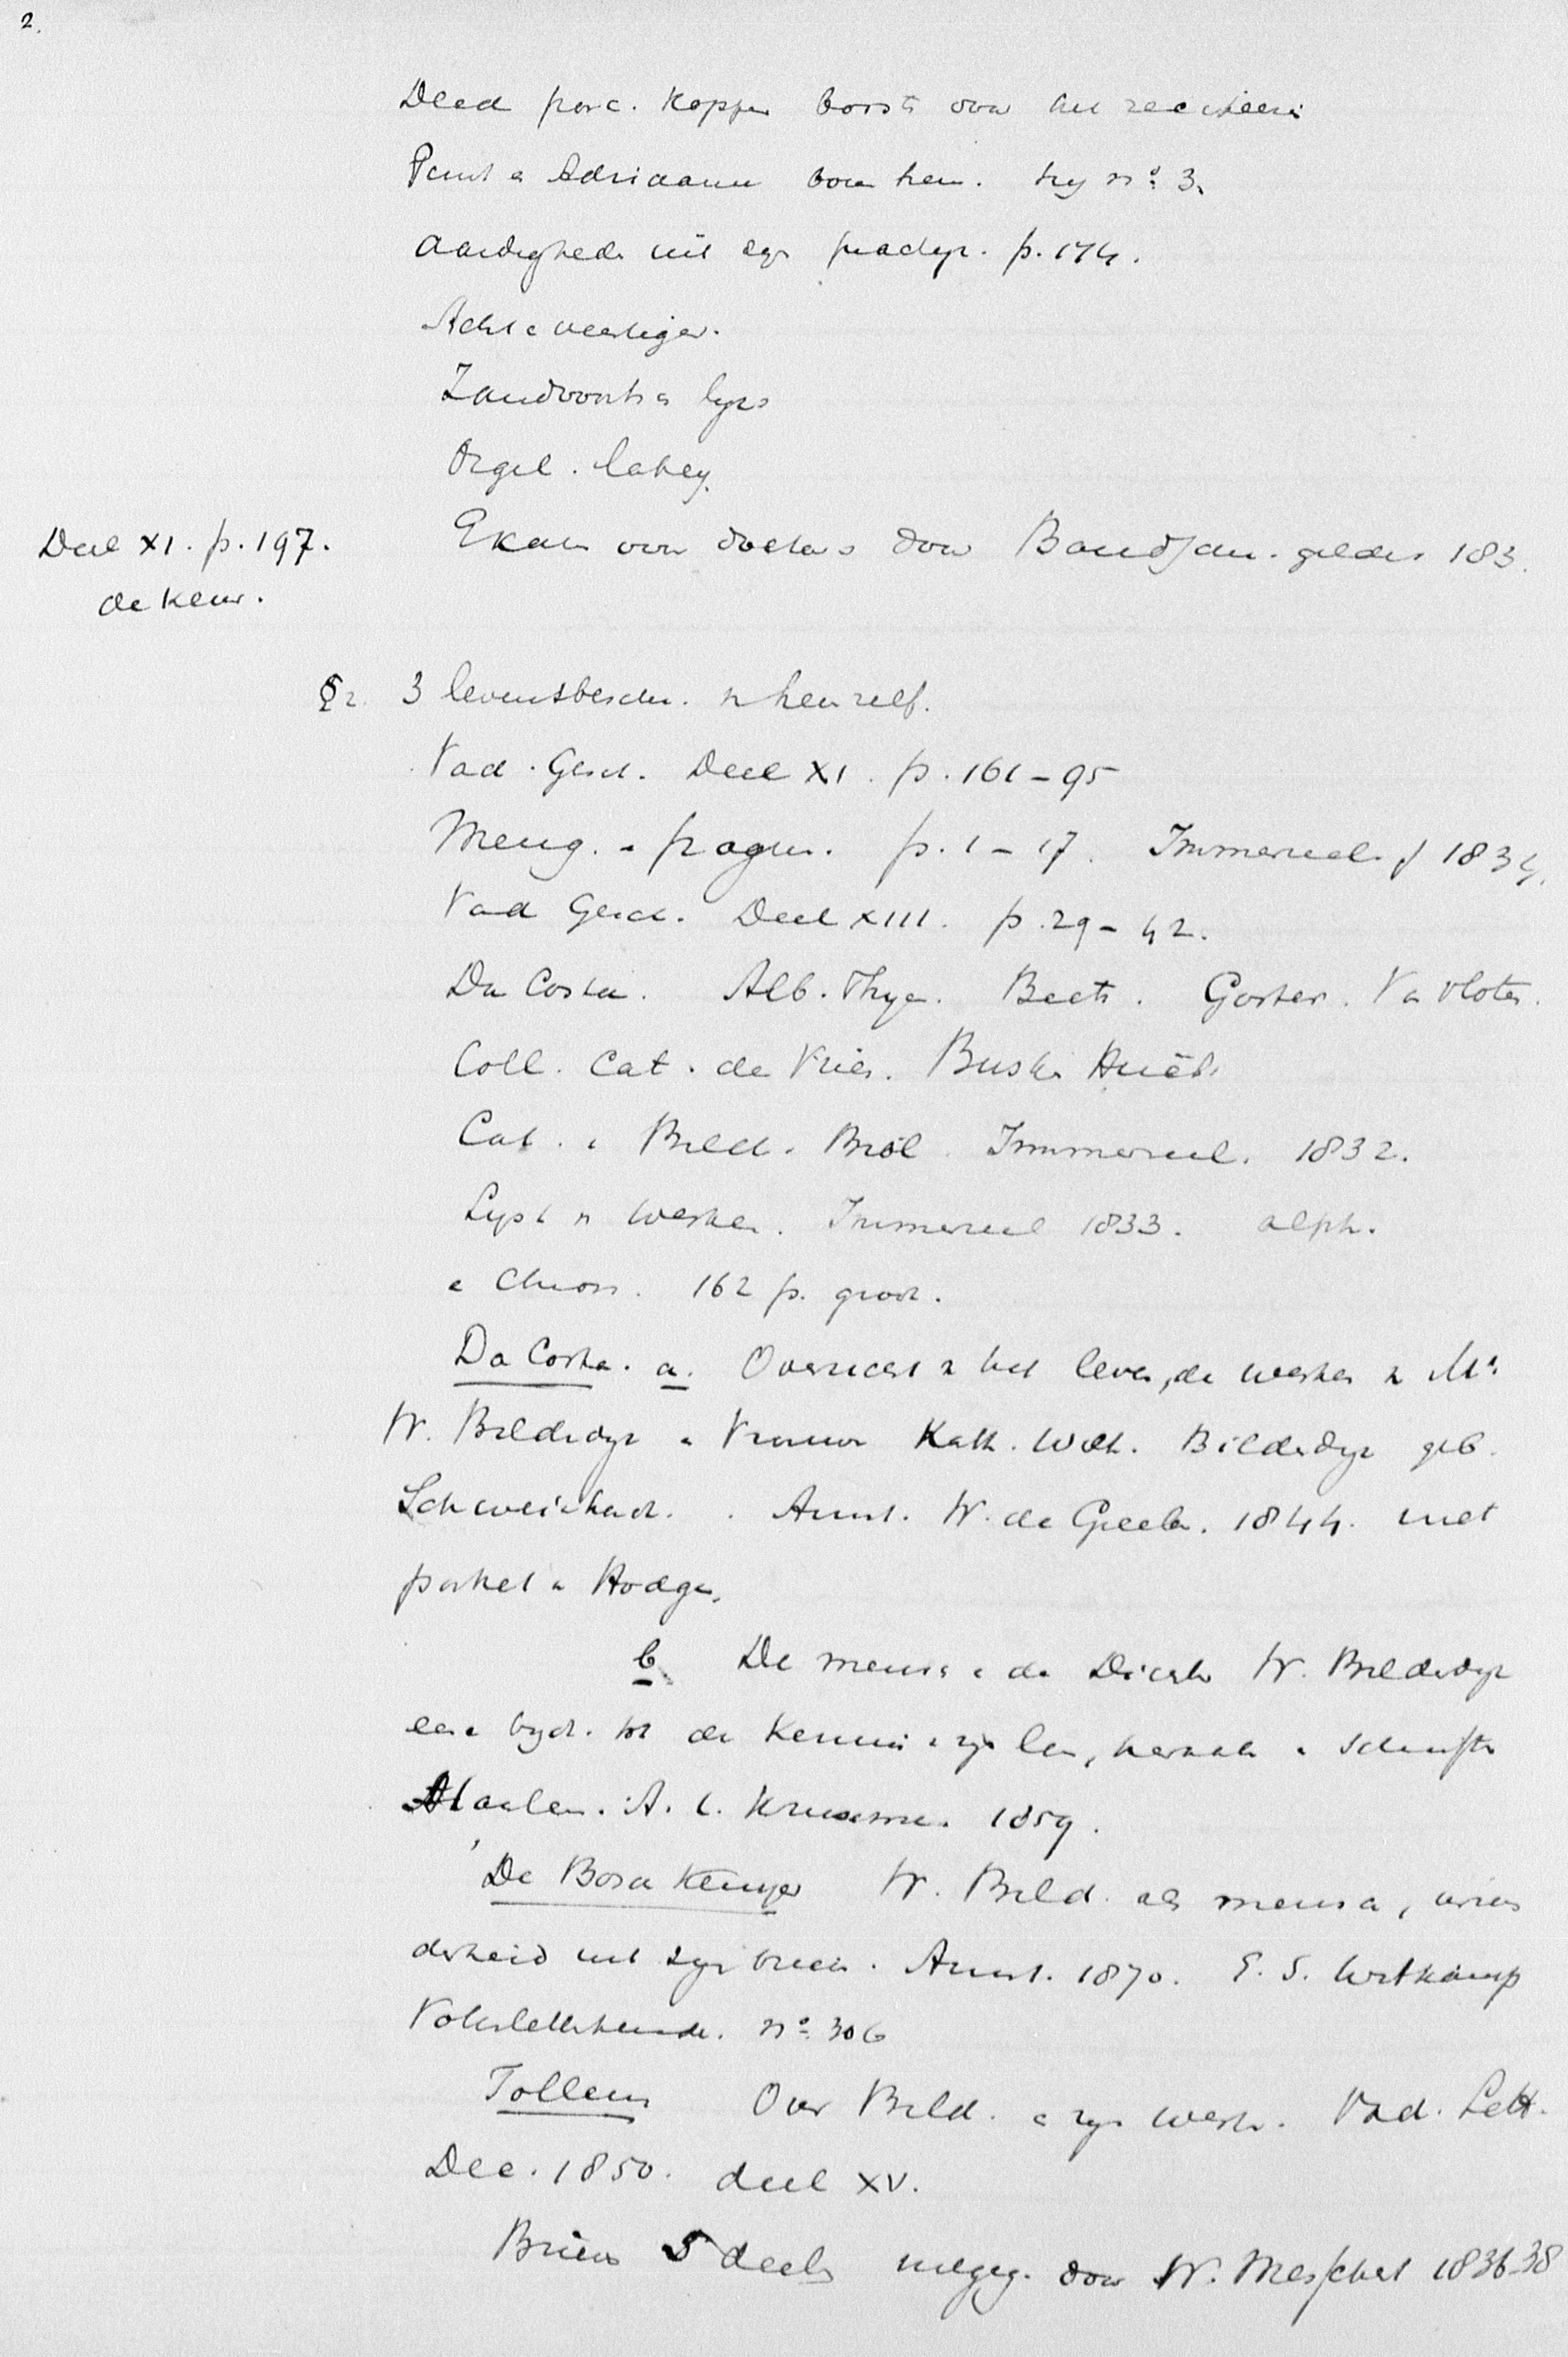 2.
Deed porc. koppen borst voor het reciteeren
Paul e Adriaanus hy nº 3.
Aardigheden uit zyn practyk. p. 174.
Acht e veertiger.
Zandvoorts lyis
Orgel.
Deel XI. p. 197.
de Keur.
Exam voor door geldes 183.
§ 2. 3 levensbeschr. v hem zelf.
Vad. Gesch. Deel XI. p. 161-95
Meng. e fragm. p. 1-17. Immerzeel 1834.
Vad Gesch. Deel XIII. p. 29-42.
Da Costa. Alb. Thym. Beets. Gorter. Va Vloten.
Coll. Cat. de Vries. Busken Huët.
Cat. v Bild. Bibl. Immerzeel. 1832.
Lyst v werken. Immerzeel 1833. alph.
e Chron. 162 p. groot.
Da Costa. a. Overzicht v het leven, de werken v Mr
W. Bilderdyk e Vrouwe Kath. Wilh. Bilderdyk geb.
Schweickhardt. Amst. W. de Grebber. 1844. met
portret v Hodges.
b. De mensch e de Dichter W. Bilderdyk
eene bydr. tot de kennis v zyn leven, karakter e schriften
Haarlem. A. C. Kruseman. 1859.
De Bosch Kemper W. Bild. als mensch,
uit zyn brieven. Amst. 1870. G. S. Witkamp
Volksletterkunde. nº 306
Tollens Over Bild. e zyn werk. Vad. Lett.
Dec. 1850. deel XV.
Brieven 5 deelen uitgeg. door W. Messchert 1836-38